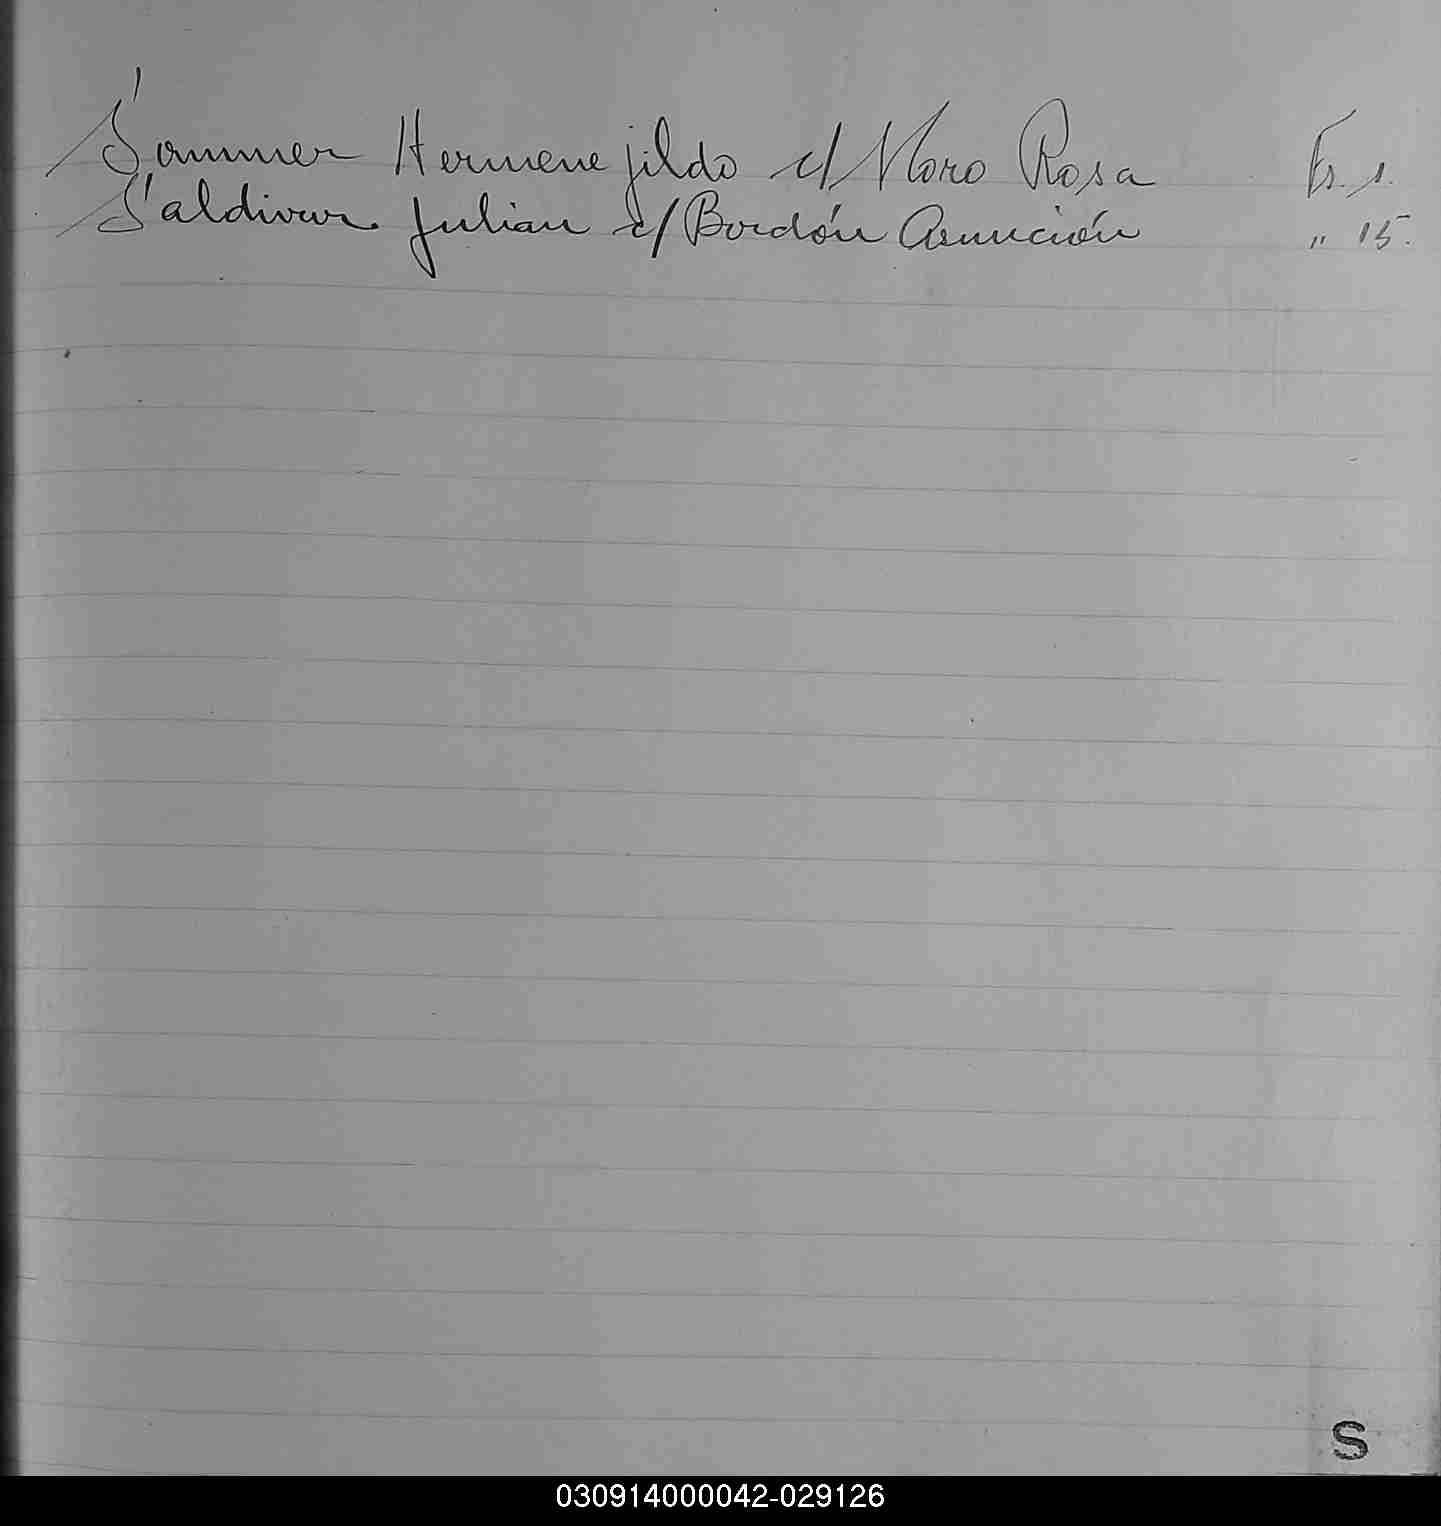 Sommer Hermenejildo c/ Moro Rosa Fs. 1.
Saldivar Julian c/ Bordón Asunción " 15.
S
030914000042-029126